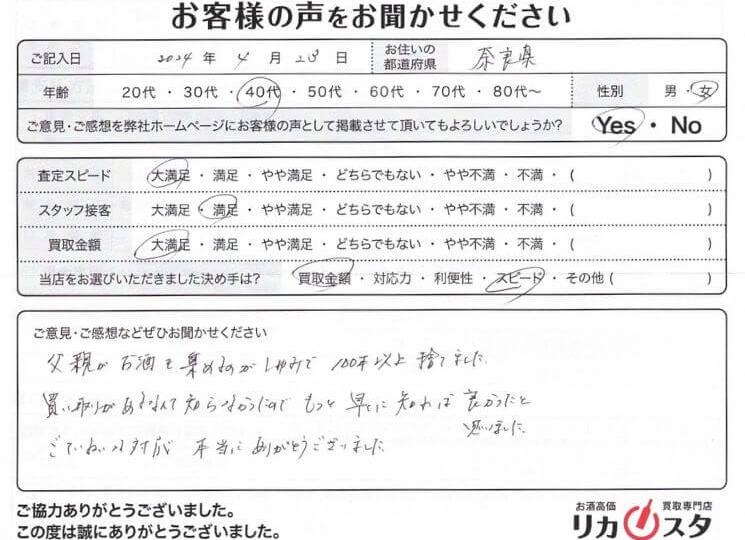 お客様の声をお聞かせください
ご記入日 2024 年 4 月 23 日 お住いの都道府県 奈良県
年齢 20代 ・ 30代 ・ 40代 ・ 50代 ・ 60代 ・ 70代 ・ 80代〜 性別 男 ・ 女
ご意見・ご感想を弊社ホームページにお客様の声として掲載させて頂いてもよろしいでしょうか? Yes ・ No
査定スピード 大満足 ・ 満足 ・ やや満足 ・ どちらでもない ・ やや不満 ・ 不満 ・ ( )
スタッフ接客 大満足 ・ 満足 ・ やや満足 ・ どちらでもない ・ やや不満 ・ 不満 ・ ( )
買取金額 大満足 ・ 満足 ・ やや満足 ・ どちらでもない ・ やや不満 ・ 不満 ・ ( )
当店をお選びいただきました決め手は? 買取金額 ・ 対応力 ・ 利便性 ・ スピード ・ その他 ( )
ご意見・ご感想などぜひお聞かせください
父親が お酒を 集めるのが しゅみで 100本以上 捨てました
買い取りがあるなんて知らなかったので もっと 早くに 知れば 良かったと
思いました
ていねいな対応 本当に ありがとうございました
ご協力ありがとうございました。
この度は誠にありがとうございました。
お酒高価 買取専門店
リカスタ